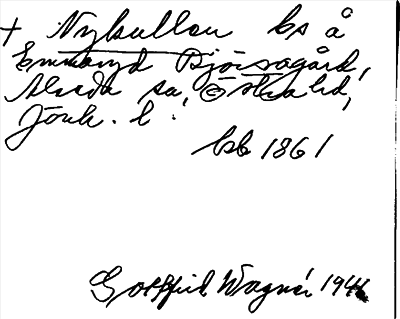 + Nykullen bs å
Emmaryd Björsagård,
Alseda sn, Östra hd,
Jönk. l.
bsb 1861
Gottfrid Wagnér 1946